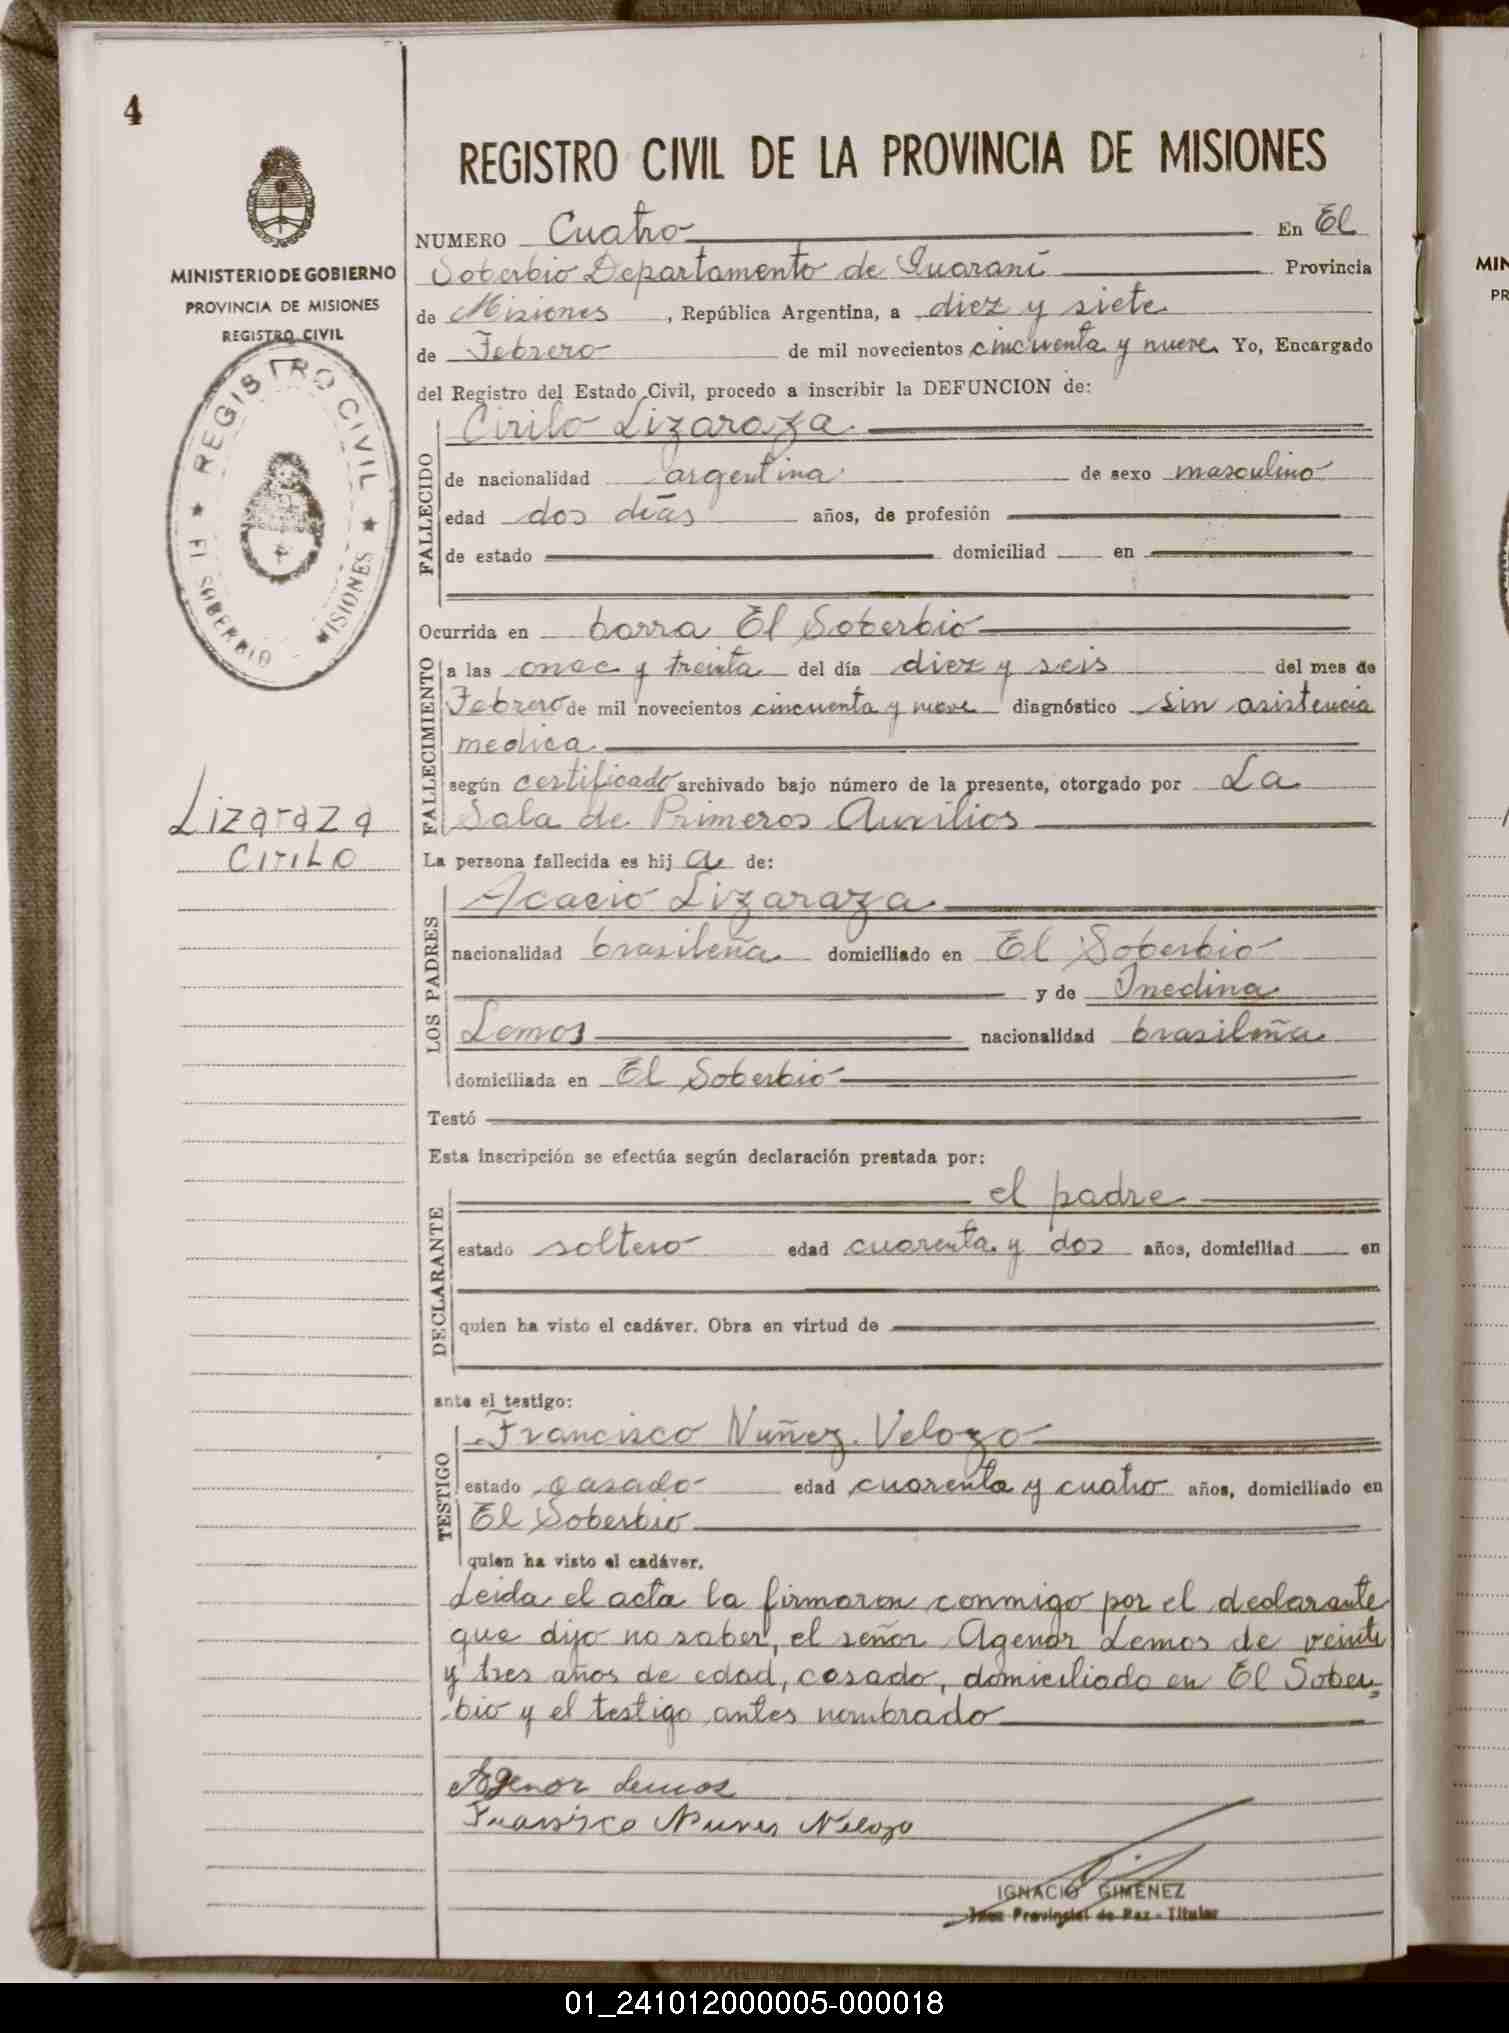 4
MINISTERIO DE GOBIERNO
PROVINCIA DE MISIONES
REGISTRO CIVIL
REGISTRO CIVIL
EL SOBERBIO - MISIONES
Lizaraza
Cirilo
REGISTRO CIVIL DE LA PROVINCIA DE MISIONES
NUMERO Cuatro En El
Soberbio Departamento de Guaraní Provincia
de Misiones, República Argentina, a diez y siete
de Febrero de mil novecientos cincuenta y nueve Yo, Encargado
del Registro del Estado Civil, procedo a inscribir la DEFUNCION de:
FALLECIDO
Cirilo Lizaraza
de nacionalidad argentina de sexo masculino
edad dos días años, de profesión
de estado domiciliad en
Ocurrida en barra El Soberbio
FALLECIMIENTO
a las once y treinta del día diez y seis del mes de
Febrero de mil novecientos cincuenta y nueve diagnóstico sin asistencia
medica
según certificado archivado bajo número de la presente, otorgado por La
Sala de Primeros Auxilios
La persona fallecida es hij a de:
LOS PADRES
Acacio Lizaraza
nacionalidad brasileña domiciliado en El Soberbio
y de Inedina
Lemos nacionalidad brasileña
domiciliada en El Soberbio
Testó
Esta inscripción se efectúa según declaración prestada por:
DECLARANTE
el padre
estado soltero edad cuarenta y dos años, domiciliad en
quien ha visto el cadáver. Obra en virtud de
ante el testigo:
TESTIGO
Francisco Nuñez Velozo
estado casado edad cuarenta y cuatro años, domiciliado en
El Soberbio
quien ha visto el cadáver.
Leida el acta la firmaron conmigo por el declarante
que dijo no saber, el señor Agenor Lemos de veinti
y tres años de edad, casado, domiciliado en El Sober=
bio y el testigo antes nombrado
Agenor Lemos
Fransisco Nunes Velozo
IGNACIO GIMENEZ
Juez Provincial de Paz - Titular
MIN
PR
01_241012000005-000018